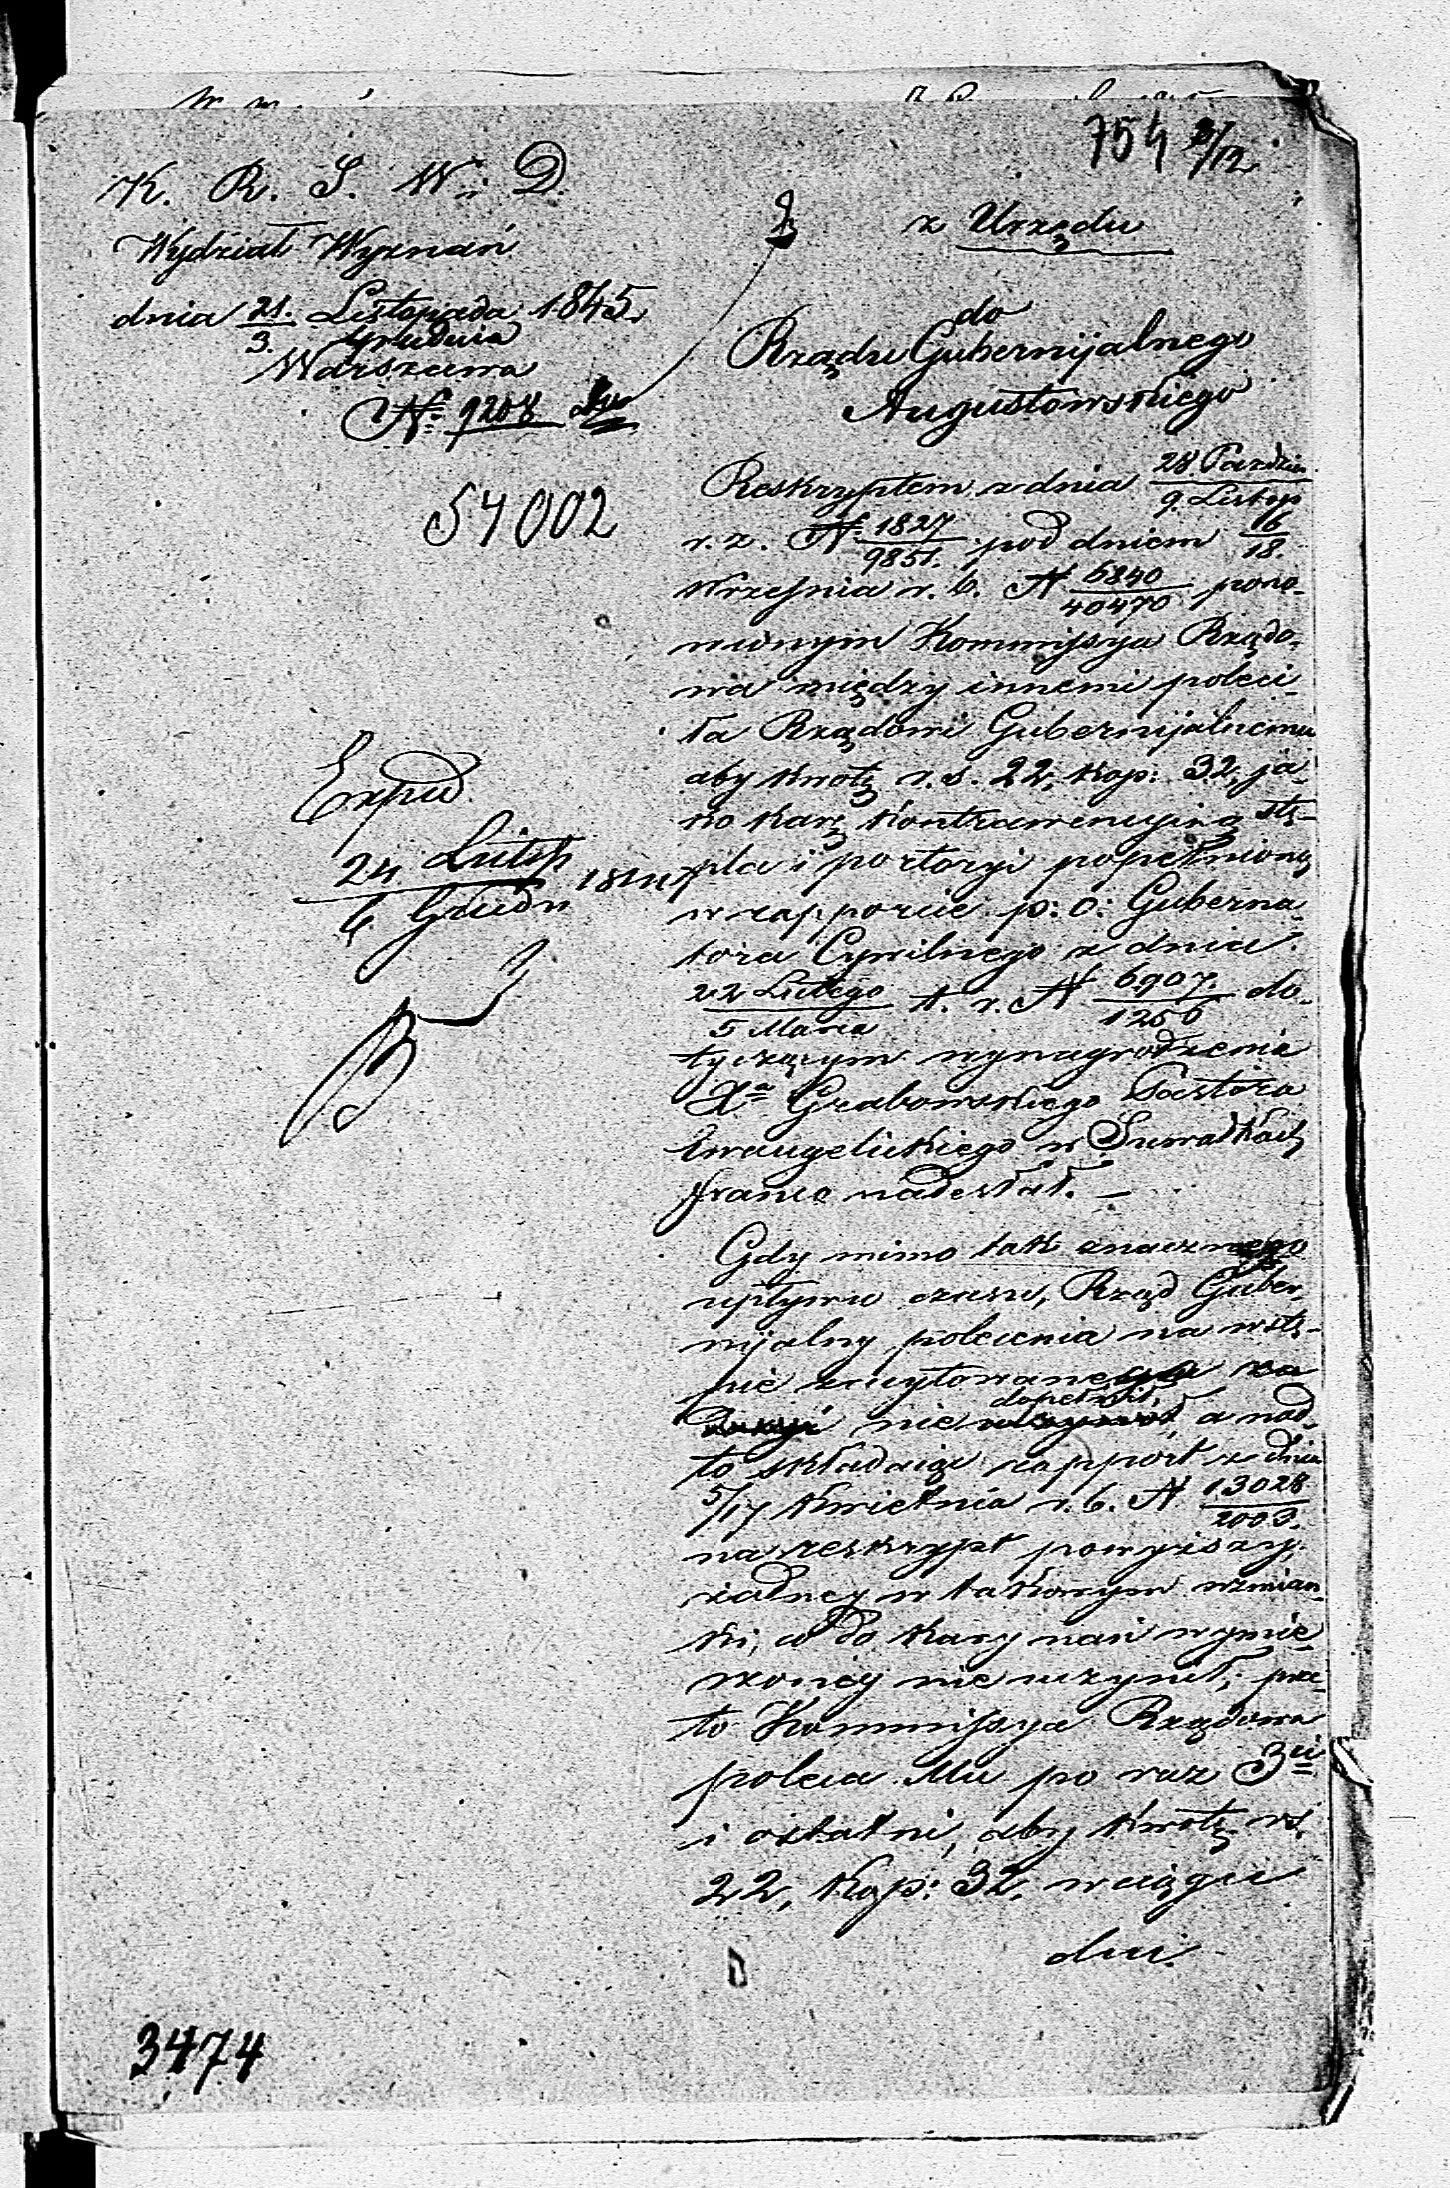 754 3/12
K. R. S. W. i D.
Wydział Wyznań
dnia 21./3. Listopada/Grudnia 1845
Warszawa
N° 9208
54002
z Urzędu
do
Rządu Gubernijalnego
Augustowskiego
Reskryptem z dnia 28. Paździer./9. Listop
r. z. N° 1827/9851. pod dniem 16/18.
Września r. b. N 6840/40470 pono-
wionym Kommissya Rządo-
wa między innemi poleci-
ła Rządowi Gubernijalnemu
aby kwotę r. s. 22, kop: 32, ja-
ko karę kontrawencyi stę-
pla i portoryi popełnioną
w rapporcie p: o: Guberna-
tora Cywilnego z dnia
22 Lutego/5 Marca t. r. N 6907./1256 do-
tyczącym wynagrodzenia
Xa Grabowskiego Pastora
Ewangelickiego w Suwałkach
franco nadesłał. —
Gdy mimo tak znacznego
upływu czasu, Rząd Guber-
nijalny polecenia na wstę-
pie zacytowane
nie dopełnił, a nad-
to składając rapport z dnia
5/17 Kwietnia r. b. N 13028/2003.
na reskrypt powyższy,
żadney w takowym wzmian-
ki, co do kary nań wymie-
rzoney nie uczynił; prze-
to Kommissya Rządowa
poleca Mu po raz 3ci
i ostatni, aby kwotę rs.
22, kop: 32, w ciągu
dni.
Exped.
24 Listop/6 Grudn 184
3474